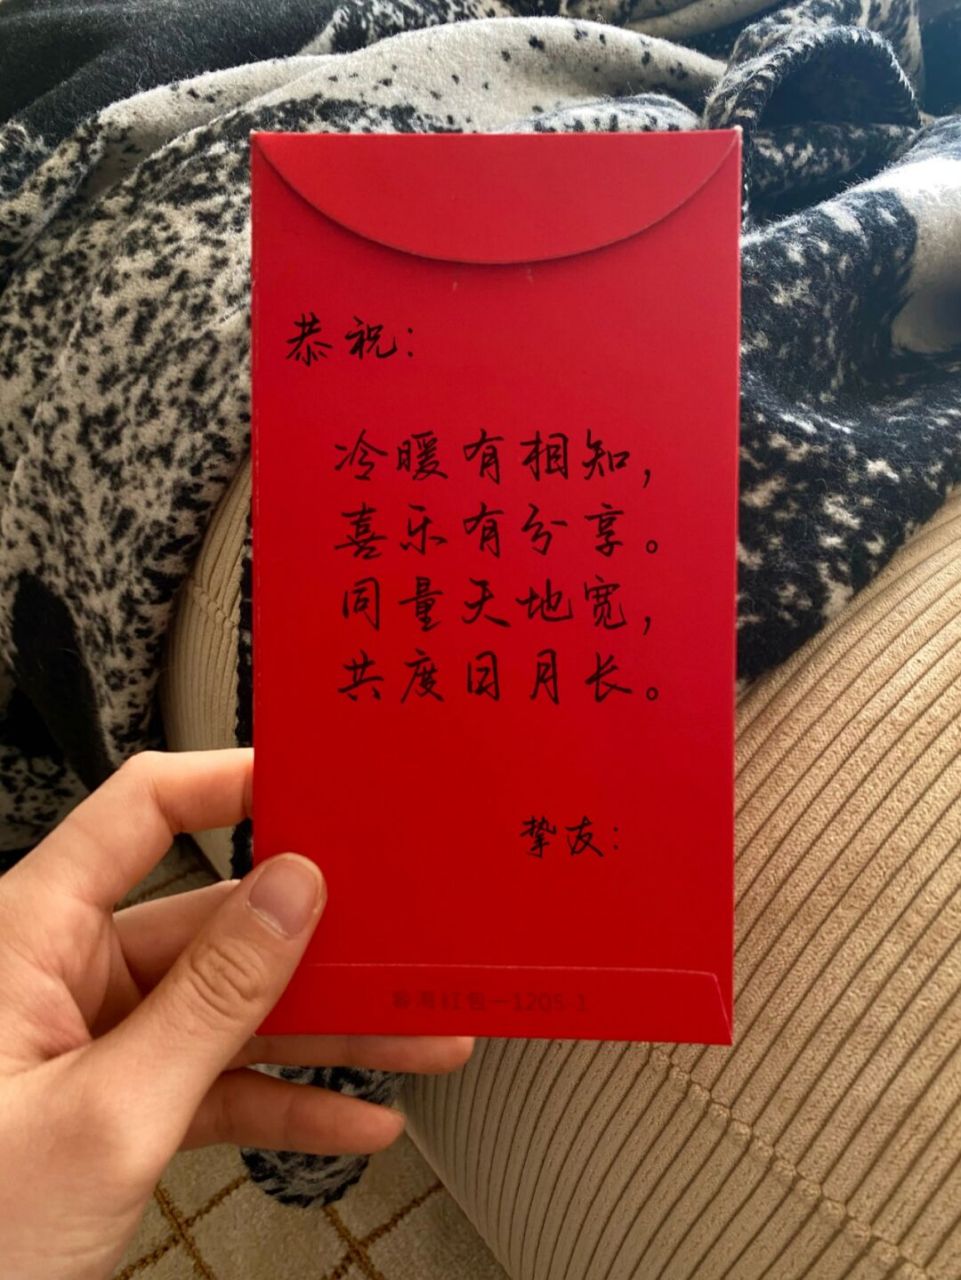 恭祝：
冷暖有相知，
喜乐有分享。
同量天地宽，
共度日月长。
挚友：
红包-1206 1